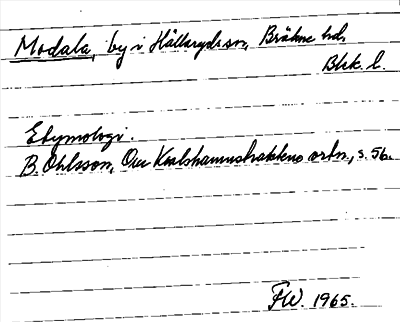 Modala, by i Hällaryds sn, Bräkne hd,
Blek. l.
Etymologi.
B. Ohlsson, Om Karlshamnstraktens ortn., s. 56.
FW. 1965.